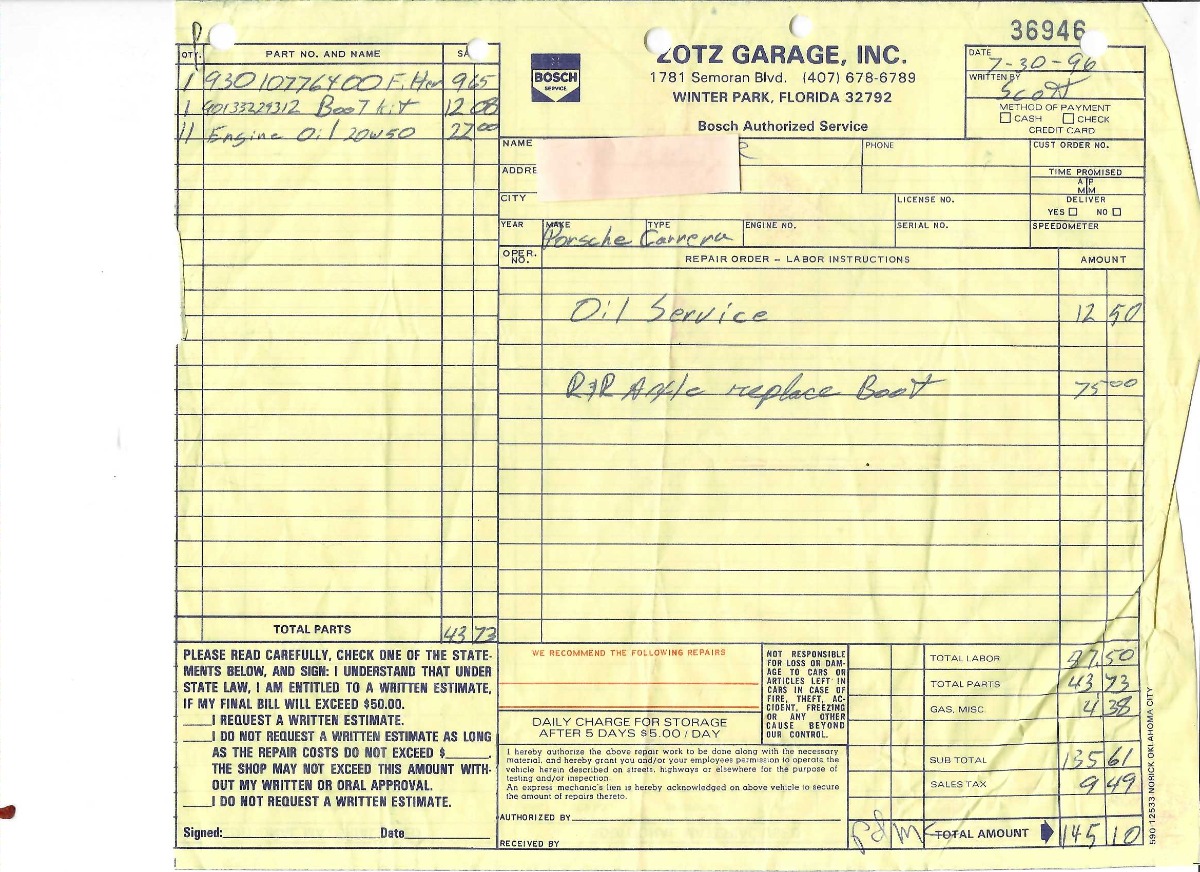 36946
QTY. PART NO. AND NAME SA
1 93010776400 F. 9 65
1 90133229312 Boot Kit 12 08
11 Engine Oil 20W50 22 00
TOTAL PARTS 43 73
BOSCH
SERVICE
ZOTZ GARAGE, INC.
1781 Semoran Blvd. (407) 678-6789
WINTER PARK, FLORIDA 32792
Bosch Authorized Service
DATE
7-30-96
WRITTEN BY
Scott
METHOD OF PAYMENT
CASH CHECK
CREDIT CARD
NAME PHONE CUST ORDER NO.
ADDRE TIME PROMISED
A P
M M
CITY LICENSE NO. DELIVER
YES NO
YEAR MAKE TYPE ENGINE NO. SERIAL NO. SPEEDOMETER
Porsche Carrera
OPER. NO. REPAIR ORDER – LABOR INSTRUCTIONS AMOUNT
Oil Service 12 50
R&R Axle replace Boot 75 00
PLEASE READ CAREFULLY, CHECK ONE OF THE STATE-
MENTS BELOW, AND SIGN: I UNDERSTAND THAT UNDER
STATE LAW, I AM ENTITLED TO A WRITTEN ESTIMATE,
IF MY FINAL BILL WILL EXCEED $50.00.
____I REQUEST A WRITTEN ESTIMATE.
____I DO NOT REQUEST A WRITTEN ESTIMATE AS LONG
AS THE REPAIR COSTS DO NOT EXCEED $______.
THE SHOP MAY NOT EXCEED THIS AMOUNT WITH-
OUT MY WRITTEN OR ORAL APPROVAL.
____I DO NOT REQUEST A WRITTEN ESTIMATE.
Signed: Date
WE RECOMMEND THE FOLLOWING REPAIRS
DAILY CHARGE FOR STORAGE
AFTER 5 DAYS $5.00 / DAY
NOT RESPONSIBLE
FOR LOSS OR DAM-
AGE TO CARS OR
ARTICLES LEFT IN
CARS IN CASE OF
FIRE, THEFT, AC-
CIDENT, FREEZING
OR ANY OTHER
CAUSE BEYOND
OUR CONTROL.
I hereby authorize the above repair work to be done along with the necessary
material, and hereby grant you and/or your employees permission to operate the
vehicle herein described on streets, highways or elsewhere for the purpose of
testing and/or inspection.
An express mechanic's lien is hereby acknowledged on above vehicle to secure
the amount of repairs thereto.
AUTHORIZED BY
RECEIVED BY
TOTAL LABOR 87.50
TOTAL PARTS 43 73
GAS, MISC 4 38
SUB TOTAL 135 61
SALES TAX 9 49
TOTAL AMOUNT 145 10
590-12533 NORICK OKLAHOMA CITY